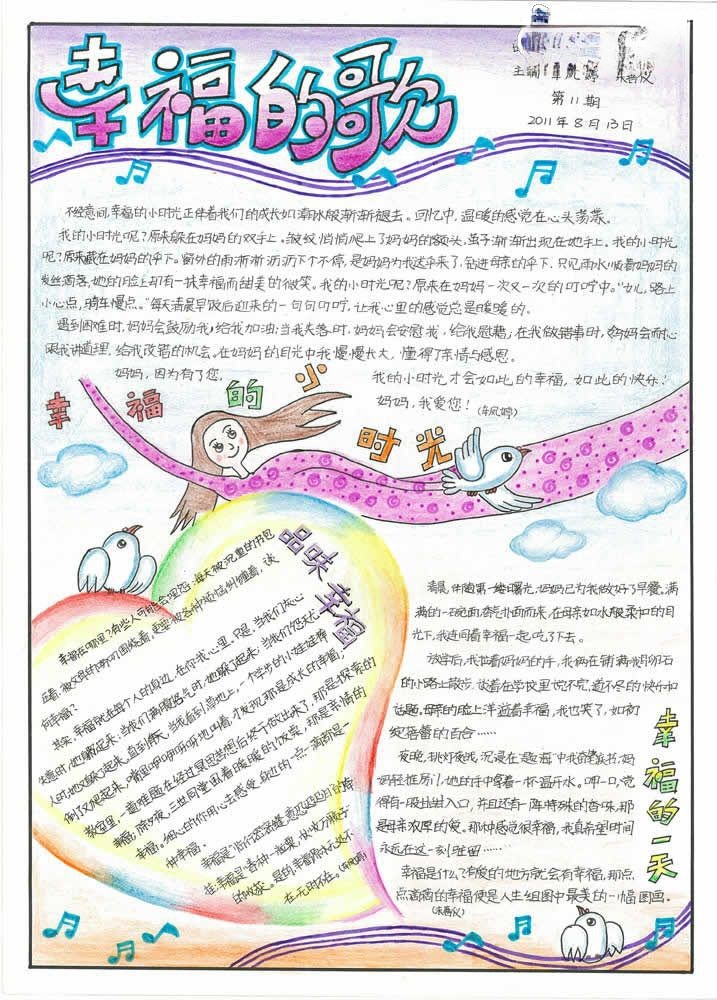 幸福的歌
主编
第11期
2011年8月13日
不经意间,幸福的小时光正伴着我们的成长如潮水般渐渐褪去。回忆中,温暖的感觉在心头荡漾。
我的小时光呢?原来躲在妈妈的双手上。皱纹悄悄爬上了妈妈的额头,茧子渐渐出现在她手上。我的小时光
呢?原来藏在妈妈的伞下。窗外的雨淅淅沥沥下个不停,是妈妈为我送伞来了,钻进母亲的伞下,只见雨水顺着妈妈的
发丝滴落,她的脸上却有一抹幸福而甜美的微笑。我的小时光呢?原来在妈妈一次又一次的叮咛中。“女儿,路上
小心点,骑车慢点。”每天清晨早饭后迎来的一句句叮咛,让我心里的感觉总是暖暖的。
遇到困难时,妈妈会鼓励我,给我加油;当我失落时,妈妈会安慰我,给我慰藉;在我做错事时,妈妈会耐心
跟我讲道理,给我改错的机会。在妈妈的目光中我慢慢长大,懂得了亲情与感恩。
妈妈,因为有了您,
我的小时光才会如此的幸福,如此的快乐!
妈妈,我爱您!
幸福的小时光
品味幸福
幸福在哪里?有些人可能会埋怨:每天被沉重的书包
压着,被父母的唠叨围绕着,
何幸福?
其实,幸福就在每个人的身边,在你我心里。只是,当我们灰心
失意时,她躲起来;当我们
人时,她又躲了起来。直到有天,当我看到草地上,一个学步的小娃娃摔
倒了又爬起来,
教室里,一道难题在经过冥思苦想后终于做出来了,那是探索的
幸福;除夕夜,三世同堂围着暖暖的饭桌,那是亲情的
幸福。细心的你用心去感受身边的一点一滴都是一
种幸福。
清晨,伴随第一缕曙光,妈妈已为我做好了早餐。满
满的一碗面,香气扑面而来,在母亲如水般柔和的目
光下,我连同着幸福一起吃了下去。
放学后,我拉着妈妈的手,我俩在铺满鹅卵石
的小路上散步,谈着在学校里说不完、道不尽的快乐和
话题。母亲的脸上洋溢着幸福,我也笑了,如初
绽蓓蕾的百合……
夜晚,挑灯夜战,沉浸在“题海”中我奋笔疾书,妈
妈轻推房门,她的手中拿着一杯温开水。呷一口,觉
得有一股甜甜入口,并且还有一阵特殊的香味,那
是母亲浓厚的爱。那种感觉很幸福,我真希望时间
永远在这一刻驻留……
幸福是什么?有爱的地方就会有幸福,那点
点滴滴的幸福便是人生组图中最美的一幅图画。
幸福的一天